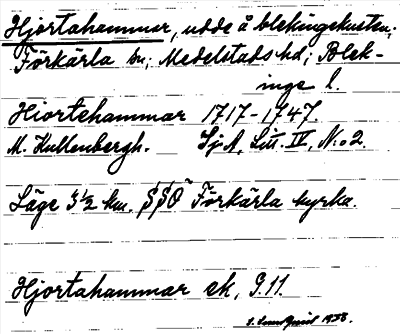 Hjortahammar, udde å blekingekusten;
Förkärla sn; Medelstads hd; Blek-
inge l.
Hiortehammar 1717-1747.
M. Kullenbergh. SjA, Litt. IV, N:o 2.
Läge 3½ km. SSO Förkärla kyrka.
Hjortahammar ek, S.11.
1938.